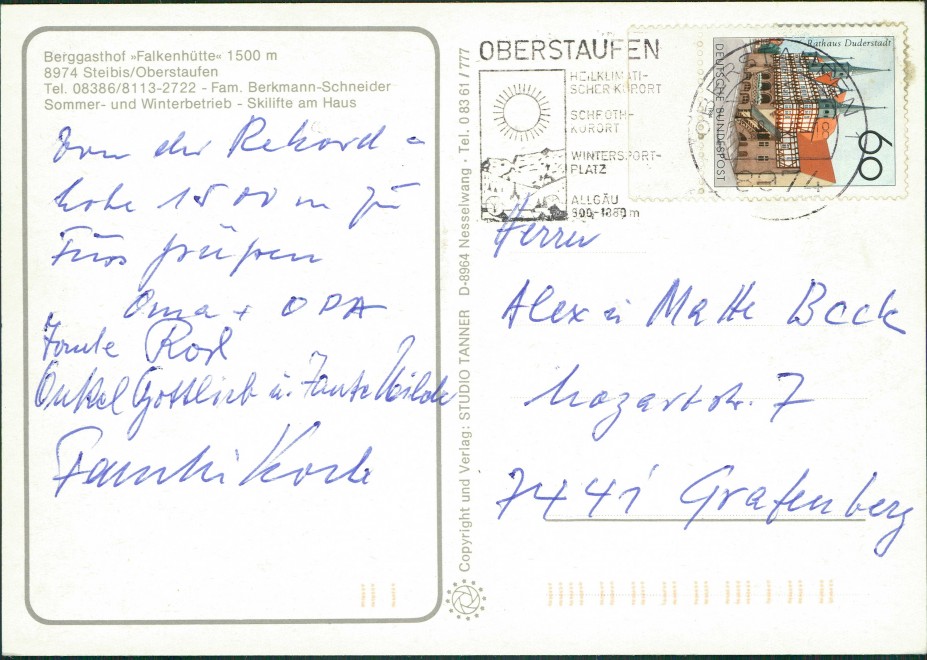 Berggasthof »Falkenhütte« 1500 m
8974 Steibis/Oberstaufen
Tel. 08386/8113-2722 - Fam. Berkmann-Schneider
Sommer- und Winterbetrieb - Skilifte am Haus
Von der Rekord -
höhe 1500 m zu
Fuss grüßen
Oma + OPA
Tante Rosl
Onkel Gottlieb u. Tante Hilde
Familie
Copyright und Verlag: STUDIO TANNER D-8964 Nesselwang - Tel. 0 83 61 / 777
OBERSTAUFEN
HEILKLIMATI-
SCHER KURORT
SCHROTH-
KURORT
WINTERSPORT-
PLATZ
ALLGÄU
Rathaus Duderstadt
DEUTSCHE BUNDESPOST
60
8974
Herrn
Alex u Matte Beck
Mozartstr. 7
7441 Grafenberg